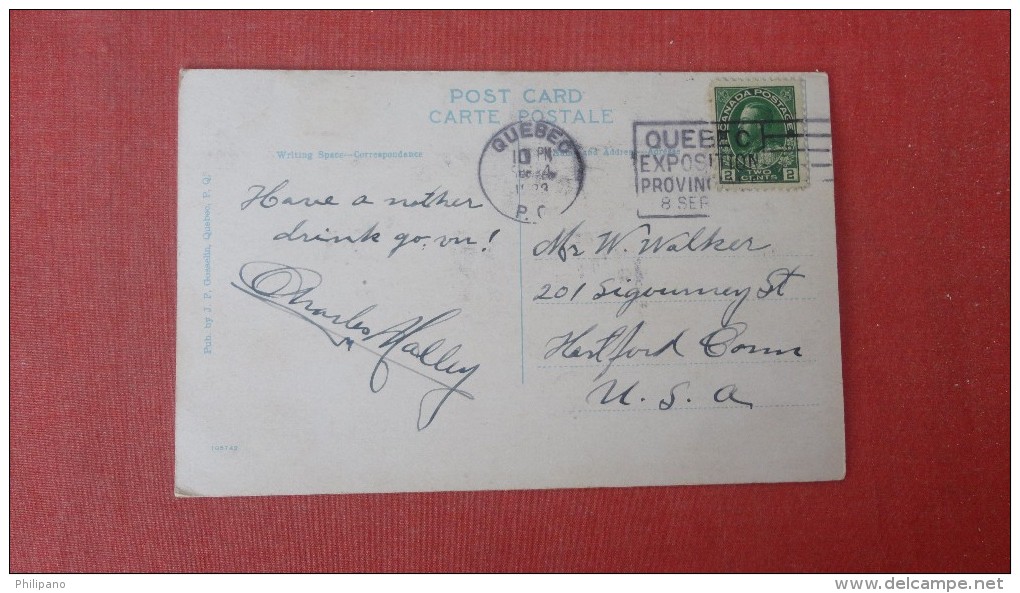 POST CARD
CARTE POSTALE
Writing Space—Correspondence
QUEBEC
PM
P.Q
QUEBEC
EXPOSITION
PROVINC
8 SEP
CANADA POSTAGE
2 TWO CENTS 2
Have a nother
drink go, on!
Charles Malley
Mr W. Walker
201 Sigourney St
Hartford Conn
U. S. A
Pub. by J. P. Gosselin, Quebec, P. Q.
Philipano
www.delcampe.net